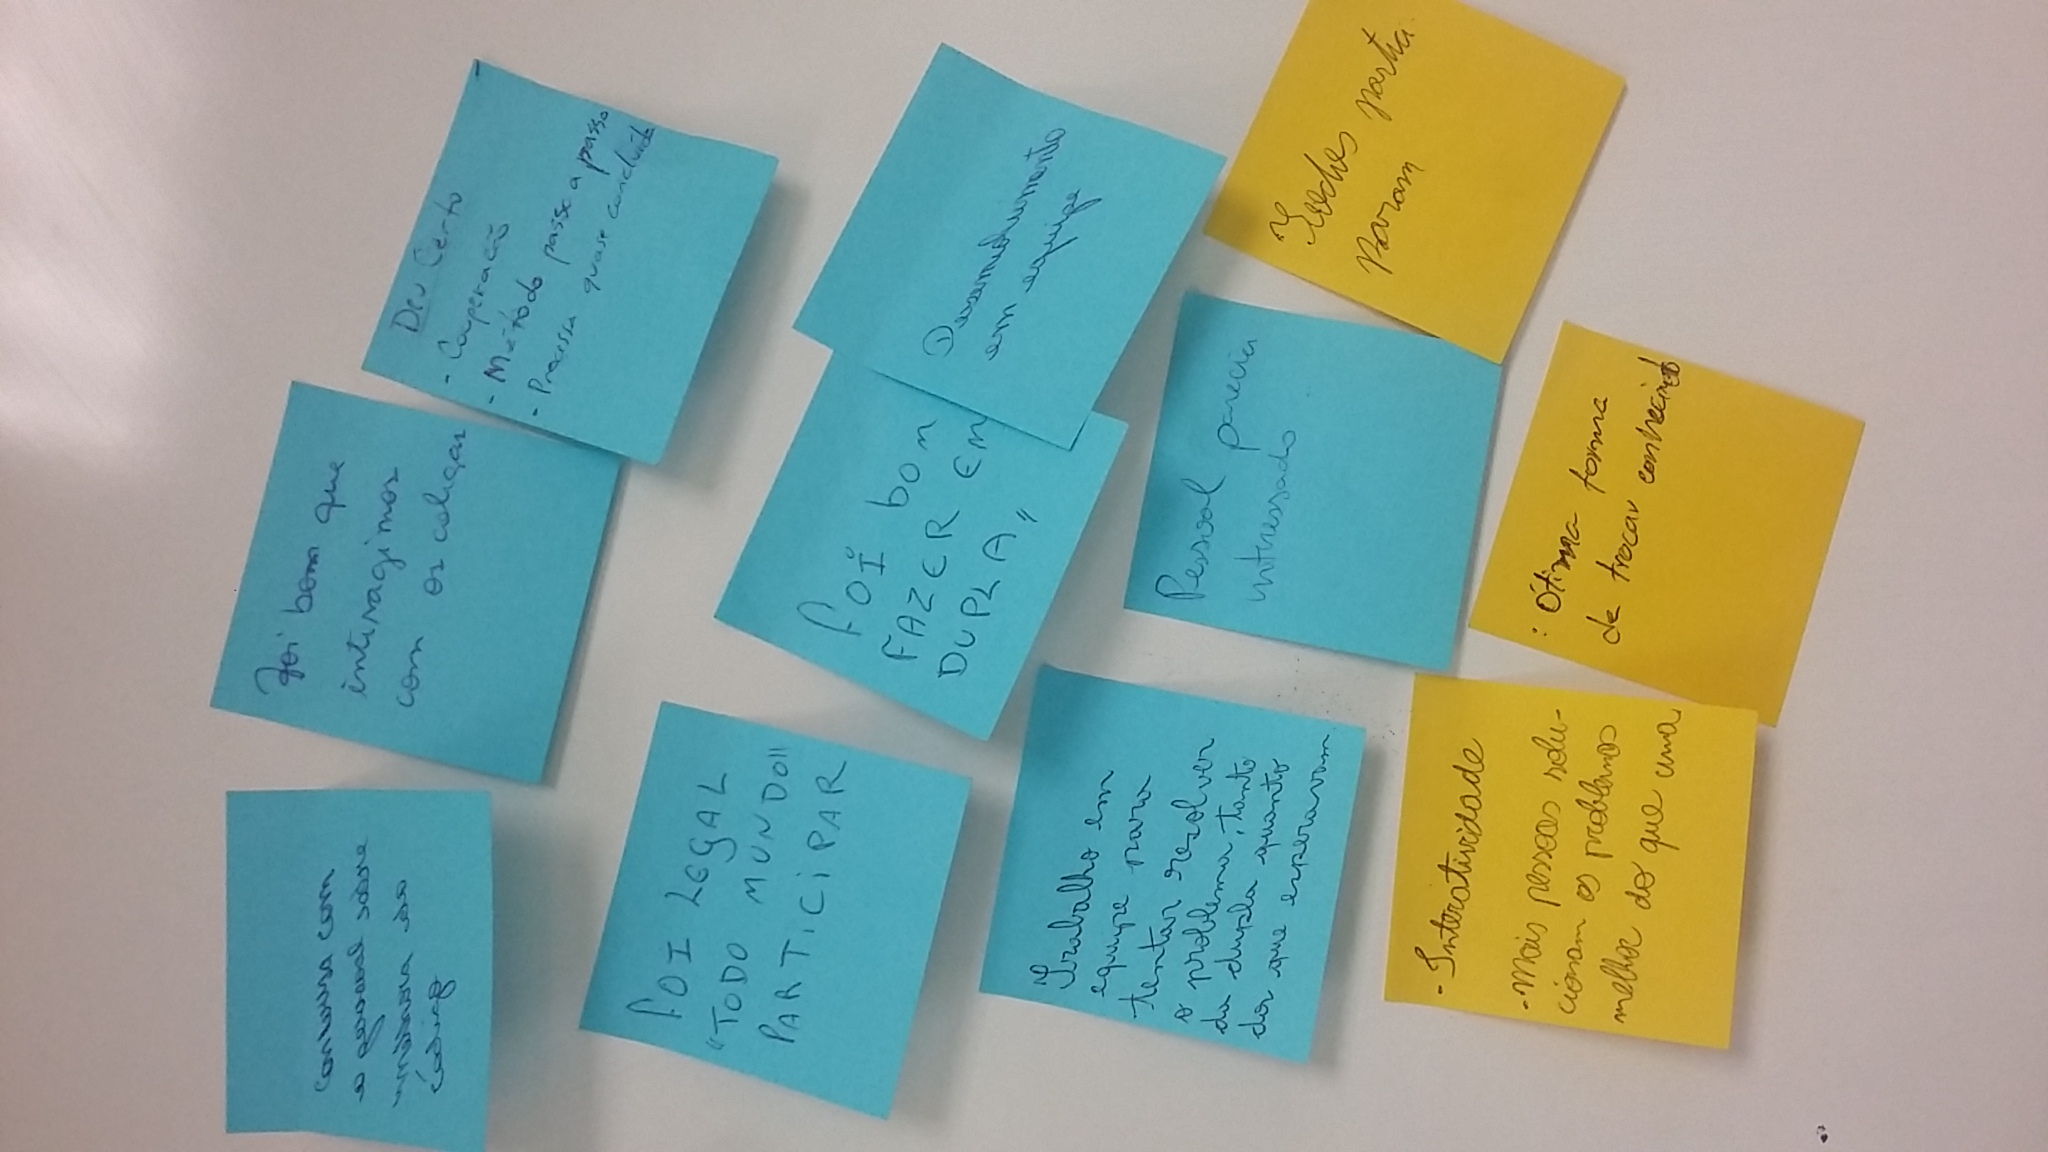 conversa com
o pessoal sobre
melhora do
código
Foi bom que
interagimos
com os colegas
Deu Certo
- Cooperacão
- Método passo a passo
- Processo quase concluído
FOI LEGAL
"TODO MUNDO"
PARTICIPAR
FOI bom
FAZER EM
DUPLA,,
Desenvolvimento
em equipe
Trabalho em
equipe para
tentar resolver
o problema, tanto
da dupla quanto
dos que esperavam.
Pessoal parecia
interessado
Todos partici-
param
- Interatividade
- Mais pessoas solu-
cionam os problemas
melhor do que uma
: Ótima forma
de trocar